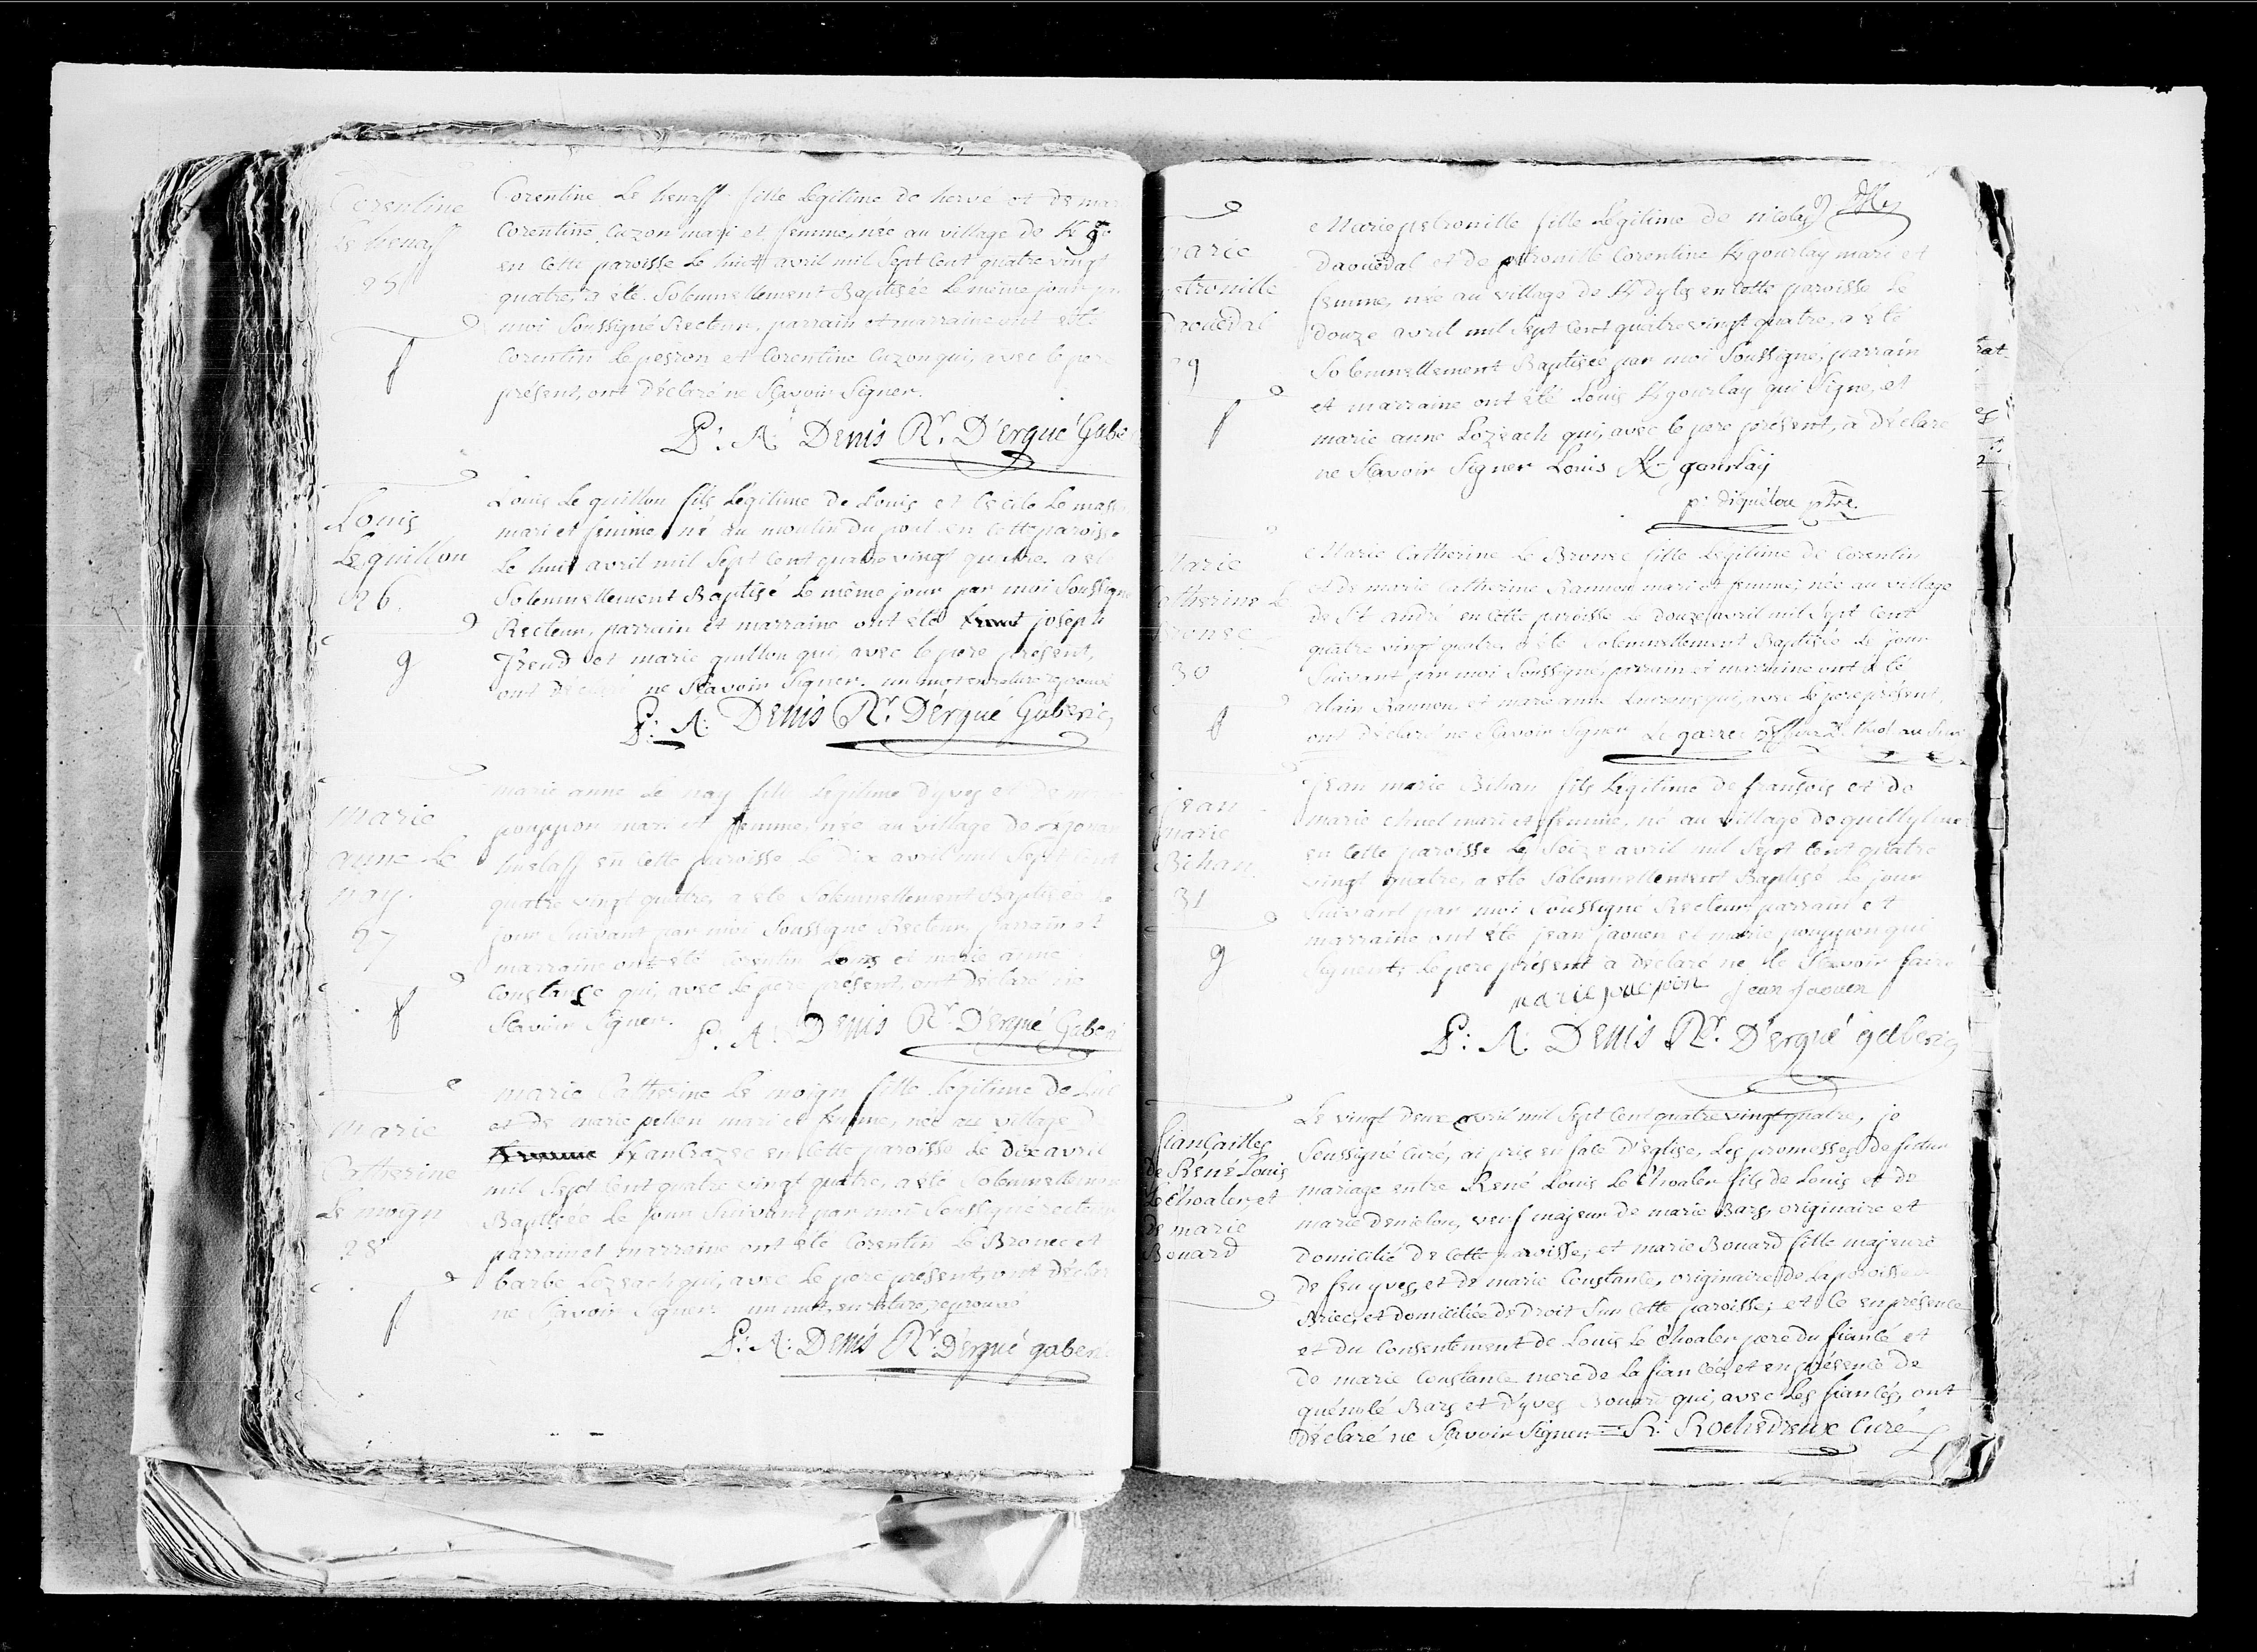 Corentine
Le henaff
25
Corentine Le henaff fille Legitime de hervé et de mar
Corentine Cuzon mari et femme, née au village de
en Cette paroisse Le huit avril mil Sept Cent quatre vingt
quatre, a été Solemnellement Baptisée Le même jour par
moi Soussigné Recteur, parrain et marraine ont été
Corentin Le pesron et Corentine Cuzon qui, avec le pere
présent, ont Déclaré ne Sçavoir Signer.
P: A: Denis Rr. D'ergué Gabe
Louis
Le quillou
26.
Louis Le quillou fils Légitime de Louis et Cecile Le mass
mari et femme, né au moulin du pont en Cette paroisse
Le huit avril mil Sept Cent quatre vingt quatre. a été
Solemnellement Baptisé Le même jour par moi Soussigné
Recteur, parrain et marraine ont été joseph
et marie quillou qui, avec le pere present,
ont Déclaré ne Sçavoir Signer. un mot en rature reprouvé
P: A: Denis Rr. D'ergué Gaberic
marie
anne Le
nay.
27
marie anne Le nay fille Légitime D'yves et De
pouppon mari et femme, née au village de
en Cette paroisse Le Dix avril mil Sept Cent
quatre vingt quatre, a été Solemnellement Baptisée le
jour Suivant par moi Soussigné Recteur, parrain et
marraine ont été Corentin et marie anne
Constance qui, avec Le pere présent, ont déclaré ne
Sçavoir Signer. P: A: Denis Rr. D'ergué Gaberi
marie
Catherine
Le moign
28
marie Catherine Le moign fille légitime de
et de marie petien mari et femme, née au village
en Cette paroisse Le Dix avril
mil Sept Cent quatre vingt quatre, a été Solemnellement
Baptisée Le jour Suivant par moi Soussigné recteur
parrain et marraine ont été Corentin Le Bronec et
barbe Lozeach qui, avec Le pere présent, ont Déclaré
ne Sçavoir Signer. un mot en rature reprouvé
P: A: Denis Rr. D'ergué gaberi
marie
petronille
Daouëdal
29
Marie petronille fille Légitime de Nicolas
Daouëdal et de petronille Corentine Kgourlay mari et
femme, née au village de Kdyles en Cette paroisse Le
Douze avril mil Sept Cent quatre vingt quatre, a été
Solemnellement Baptisée par moi Soussigné, parrain
et marraine ont été Louis Kgourlay qui Signe, et
marie anne Lozeach qui, avec le pere présent, a Déclaré
ne Sçavoir Signer Louis K gourlay
p: diquélou ptre.
Marie
Catherine Le
Bronec
30
Marie Catherine Le Bronec fille Légitime de Corentin
et de marie Catherine Rannou mari et femme, née au village
de St andré en Cette paroisse Le Douze avril mil Sept Cent
quatre vingt quatre, a été Solemnellement Baptisée Le jour
Suivant par moi Soussigné, parrain et marraine ont été
Alain Rannou, et marie anne qui, avec Le pere présent,
ont Déclaré ne Sçavoir Signer Le garrec
Jean
marie
Bihan
31
Jean marie Bihan fils Légitime de françois et de
marie huel mari et femme, né au village de
en Cette paroisse Le Seize avril mil Sept Cent quatre
vingt quatre, a été Solemnellement Baptisé Le jour
Suivant par moi Soussigné Recteur, parrain et
marraine ont été jean jaouen et marie pouppon qui
Signent; Le pere présent a déclaré ne le Sçavoir faire
marie poupon jean jaouen
P: A: Denis Rr. D'ergué gaberic
fiançailles
de René Louis
Le Choaler, et
de marie
Bouard
Le vingt Deux avril mil Sept Cent quatre vingt quatre, je
Soussigné Curé, ai pris en face D'église, Les promesses de futur
mariage entre René Louis Le Choaler fils de Louis et de
marie veuf majeur de marie Bars, originaire et
Domicilié de Cette paroisse; et marie Bouard fille majeure
de feu yves, et de marie Constance, originaire de La paroisse
Briec, et domiciliée de Droit Sur Cette paroisse; et ce en présence
et du Consentement de Louis Le Choaler pere du fiancé et
de marie Constance mere de La fiancée, et en présence de
guénolé Bars et d'yves Bouard qui, avec Les fiancés, ont
Déclaré ne Sçavoir Signer = R: Rochedreux Curé